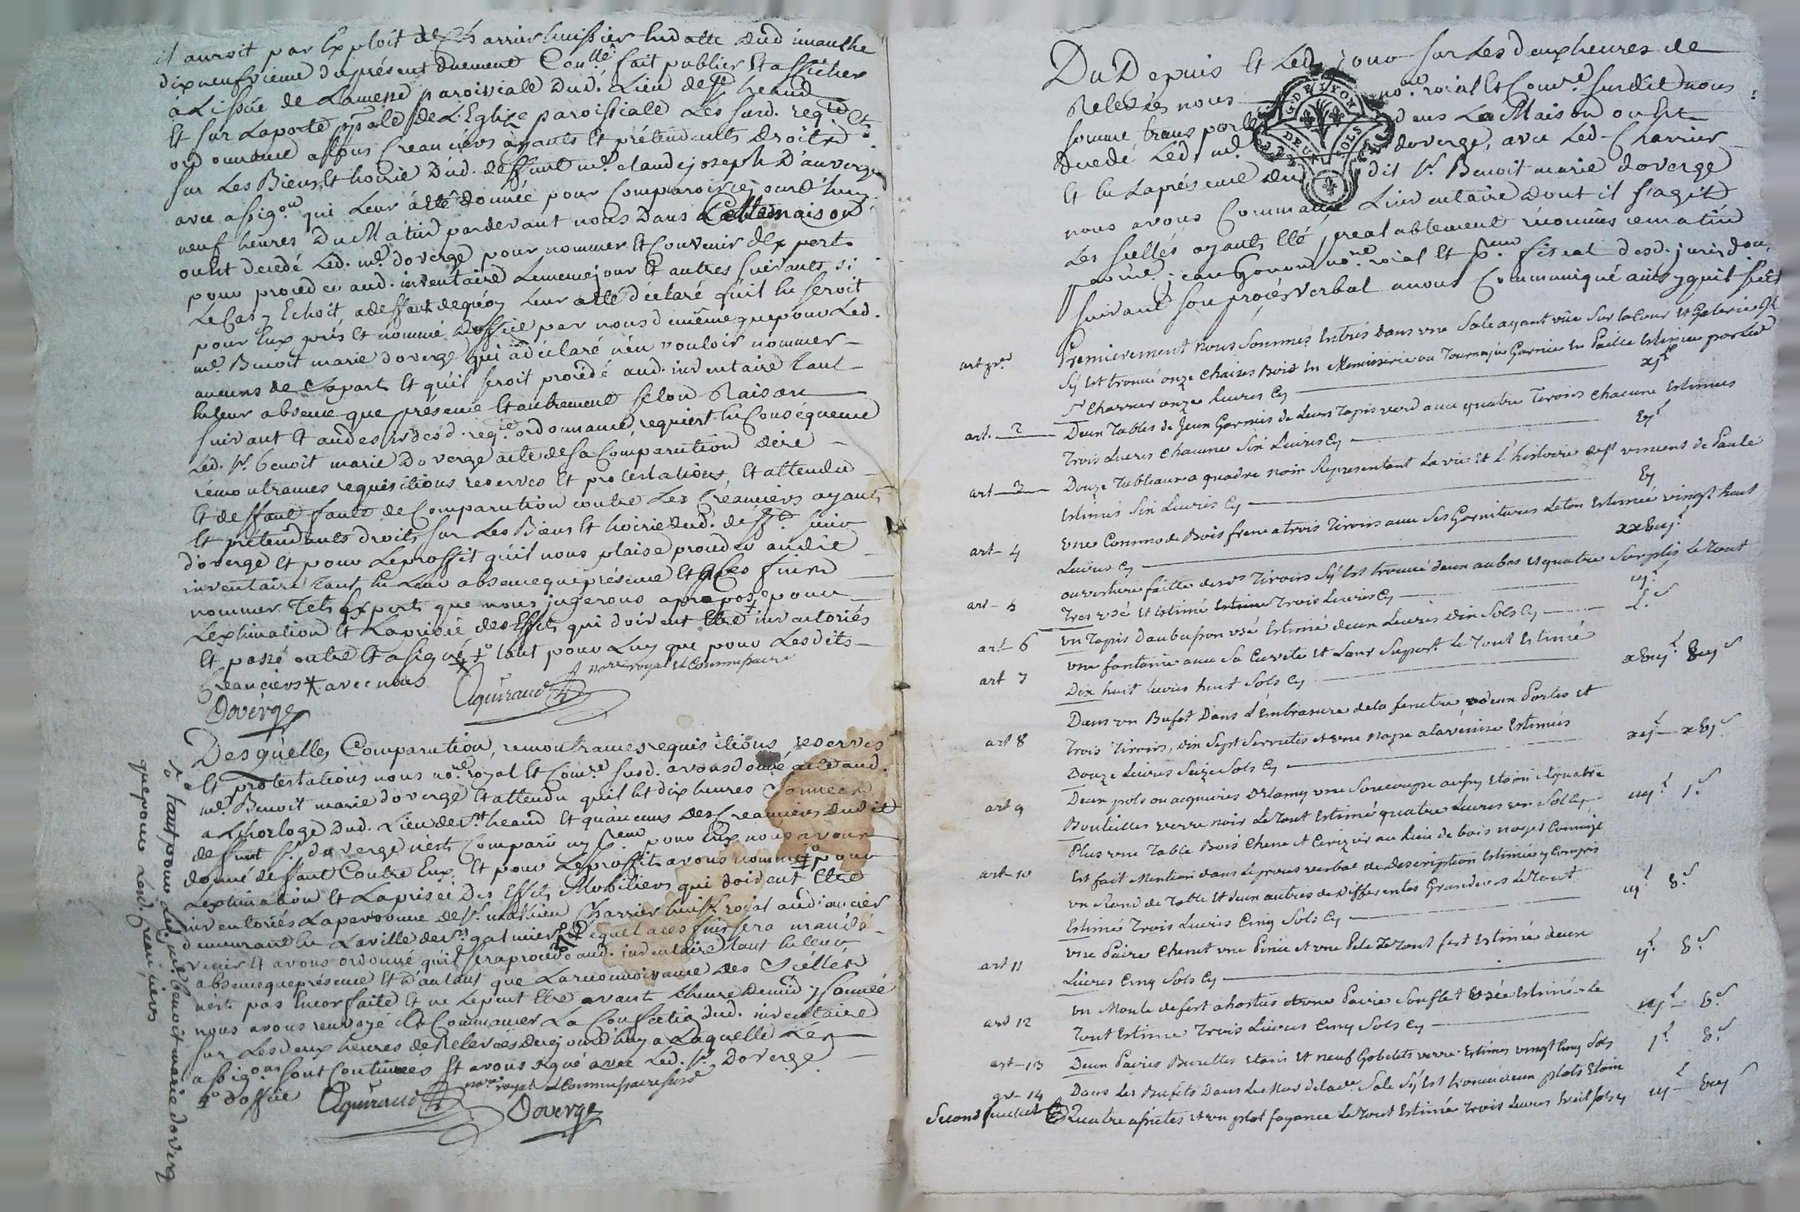 il auroit par Exploit de Charrier huissier En datte dud. imanche
dixneufvieme du présent duement Conttlé fait publier Et afficher
à L'issüe de Lamesse paroissiale dud. Lieu de St. heand
Et sur Laporte pale de L'Eglize paroissiale Les susd. reqte Et
ordonnance a tous Creanciers ayants Et prétendants droits
sur Les Biens Et hoirie dud. deffunt mr. claude joseph D'auverge
avec assigon qui leur a Eté donnée pour Comparoir cejourd'huy
neuf heures Du Matin pardevant nous Dans Cette maison
ou Est decedé Led. mr. doverge pour nommer Et Convenir d'Expert
pour proceder aud. inventaire Lememe jour Et autres suivants si
Le Cas y Echoit a deffaut dequoy Leur a Eté déclaré qu'il En seroit
pour Eux pris Et nommé Doffice par nous de même que pour Led.
mr. Benoit marie doverge qui a déclaré n'en vouloir nommer
aucuns de sa part Et qu'il seroit procédé aud. inventaire tant
En leur absence que présence Et autrement selon Raison
suivant Et au desir desd. reqte ordonnance, requiert En Consequence
Led. sr. benoit marie doverge acte de sa Comparution dire
rémontrances requisitions reserves Et protestations, Et attendu
Et deffaut faute de Comparution contre Les Créanciers ayants
Et prétendants droits sur Les Biens Et hoirie dud. defft. sieur
d'overge Et pour Leproffit qu'il nous plaise procéder audit
inventaire tant En Leur absence que présence Et a ces fins
nommer tels Experts que nous jugerons apropos pour
L'extimation Et Laprisée des Effets qui doivent Etre inventoriés
Et passé outre Et a signé tant pour Luy que pour Lesdits
Créanciers avec nous
nore royal Et Commissaire
Doverge
Aguiraud
Desquelles Comparution, remontrances requisitions reserves
Et protestations nous nore royal Et Comre susd. avons donné acte aud.
mr. Benoit marie doverge Et attendu qu'il Est dix heures sonnées
a L'horloge dud. Lieu de St. heand Et qu'aucuns des Creanciers dudit
deffunt sr. doverge n'est Comparu ny pour Eux nous avons
donné deffaut Contre Eux, Et pour Leproffit avons nommé pour
L'extimation Et Laprisée Des Effets Mobiliers qui doivent Etre
inventoriés Lapersonne de sr. mathieu Charrier huissr royal audiancier
demeurant En Laville de st. galmier Lequel a ces fins sera mandé
venir Et avons ordonné qu'il sera procédé aud. inventaire tant En leur
absence que présence Et d'autant que La reconnoissance des Scellés
n'est pas Encor faite Et ne Lepeut Etre avant L'heure De midy sonnée
nous avons renvoyé Et Commancer La Confection dud. inventaire
sur Les deux heures de Relevées de cejourd'huy a Laquelle Les
assigons sont Continuées Et avons signé avec Led. sr. doverge
d'office
nore royal Commissaire susd.
Aguiraud
Doverge
tant pour led. me benoit marie doverge
que pour lesd. creanciers
Du Depuis Et Led. jour sur Les deux heures de
Relevées nous nore. roial Et Comre. susdit nous
somme transportés dans La Maison ou Est
decedé Led. mr. doverge, avec Led. Charrier
Et En La présence du dit sr. Benoit marie doverge
nous avons Commancé L'inventaire dont il s'agit
Les scellés ayants Eté préalablement reconnus ce matin
par me. jean nore. roial Et pr. fiscal desd. jurisdon
suivant son procès verbal a nous Communiqué ainsy qu'il s'est
G. DE LYON
DEUX SOLS
art pr. Premierement nous sommes Entrés dans une Sale ayant vüe sur la Cour et Galerie
Sy Est trouvé onze Chaizes Bois En Menuiserie ou Tournage Garnies En paille Estimées par Led.
sr. Charrier onze Livres Cy xj l
art. 2 Deux Tables de Jeux Garnies de Leurs Tapis verd avec quatre Tiroirs chacune Estimés
Trois Livres chacune Six Livres Cy vj l
art. 3 Douze Tableaux a quadre noir Representant La vie Et L'histoire de st vincent de Paule
Estimés Six Livres Cy vj
art. 4 une Commode Bois frene a trois Tiroirs avec Ses Garnitures Leton Estimée vingt huit
Livres Cy xxviij l
art. 5 ouverture faitte desds Tiroirs Sy Est trouvé deux aubes et quatre Surplis Le Tout
Tres usé Et Estimé Trois Livres Cy iij l
art. 6 un Tapis Daubusson usé Estimé deux Livres dix Sols Cy
art 7 une fontaine avec Sa Cuvete Et Leur Suport Le Tout Estimé
Dix huit Livres huit Sols Cy xviij l viij s
art 8 Dans un Bufet Dans L'Embrasure de la fenetre a deux Portes et
Trois Tiroirs, dix Sept Serviettes et une nape a la vénise Estimés
Douze Livres Seize Sols Cy xij l xvj s
art 9 Deux pots ou aiguieres une Soucoupe Etain & quatre
Bouteilles verre noir Le Tout Estimé quatre Livres un Sol Cy iiij l 1 s
art 10 Plus une Table Bois Chene et Cerizier au Lieu de bois noyer Comme
Est fait Mention dans le procès verbal de description Estimée y Compris
un Rond de Table et deux autres de Differentes Grandeurs Le Tout
Estimé Trois Livres Cinq Sols Cy iij l 5 s
art 11 une Paire Chenet une Pince et une Pele Le Tout fert Estimé deux
Livres Cinq Sols Cy ij l 5 s
art 12 un Moule de fert a hosties et une Paire Souflet usée Estimé Le
Tout Estimé Trois Livres Cinq Sols Cy iij l 5 s
art 13 Deux Paires Burettes Etain Et neuf Gobelets verre Estimés vingt Cinq Sols 1 l 5 s
art 14 Dans Les Bufets Dans Le Mur de lade Sale Sy Est trouvé deux plats Etain
Second feuillet Quatre assiettes et un plat fayance Le Tout Estimé Trois Livres huit Sols Cy iij l viij s